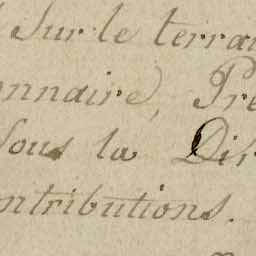 Sur le terrai
onnaire, Pré
Sous la Dir
ntributions.